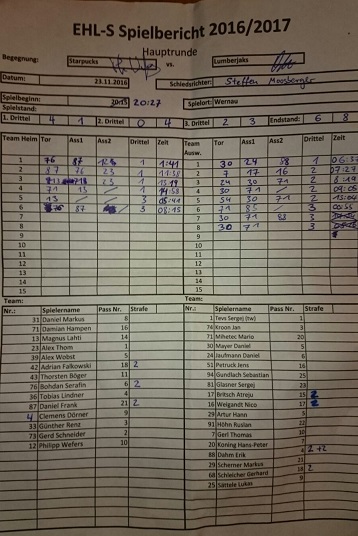 EHL-S Spielbericht 2016/2017
Hauptrunde
Begegnung: Starpucks vs. Lumberjaks
Datum: 23.11.2016 Schiedsrichter: Steffen
Spielbeginn: 20:15 20:27 Spielort: Wernau
Spielstand:
1. Drittel 4 1 2. Drittel 0 4 3. Drittel 2 3 Endstand: 6 8
Team Heim Tor Ass1 Ass2 Drittel Zeit Team Ausw. Tor Ass1 Ass2 Drittel Zeit
1 76 87 1 1:41 1 30 24 88 1
2 87 76 23 1 2 7 17 16 2
3 23 1 3 24 30 71 2
4 71 13 / 1 14:58 4 30 71 / 2 09:05
5 13 / / 3 5 54 30 71 2
6 76 87 3 08:15 6 71 85 / 3
7 7 30 71 88
8 8 30 71
9 9
10 10
11 11
12 12
13 13
14 14
15 15
Team: Team:
Nr.: Spielername Pass Nr. Strafe Nr.: Spielername Pass Nr. Strafe
31 Daniel Markus 8 1 Tevs Sergej (tw) 1
71 Damian Hampen 16 74 Kroon Jan 3
13 Magnus Lahti 14 71 Mihetec Mario 20
23 Alex Thom 1 30 Mayer Daniel 5
39 Alex Wobst 5 24 Jaufmann Daniel 6
42 Adrian Falkowski 18 2 51 Petruck Jens 16
43 Thorsten Böger 11 94 Gundlach Sebastian 25
76 Bohdan Serafin 6 2 81 Glasner Sergej 23
36 Tobias Lindner 17 Britsch Atreju 15 2
87 Daniel Frank 21 2 16 Weigandt Nico 17 2
4 Clemens Dörner 9 29 Artur Hann 5
33 Günther Renz 3 91 Höhn Ruslan 22
73 Gerd Schneider 2 7 Gerl Thomas 10
12 Philipp Wefers 10 20 Koning Hans-Peter
88 Dahm Erik 4 2+2
29 Scherner Markus 21
68 Schleicher Gerhard 18 2
25 Sattele Lukas 9